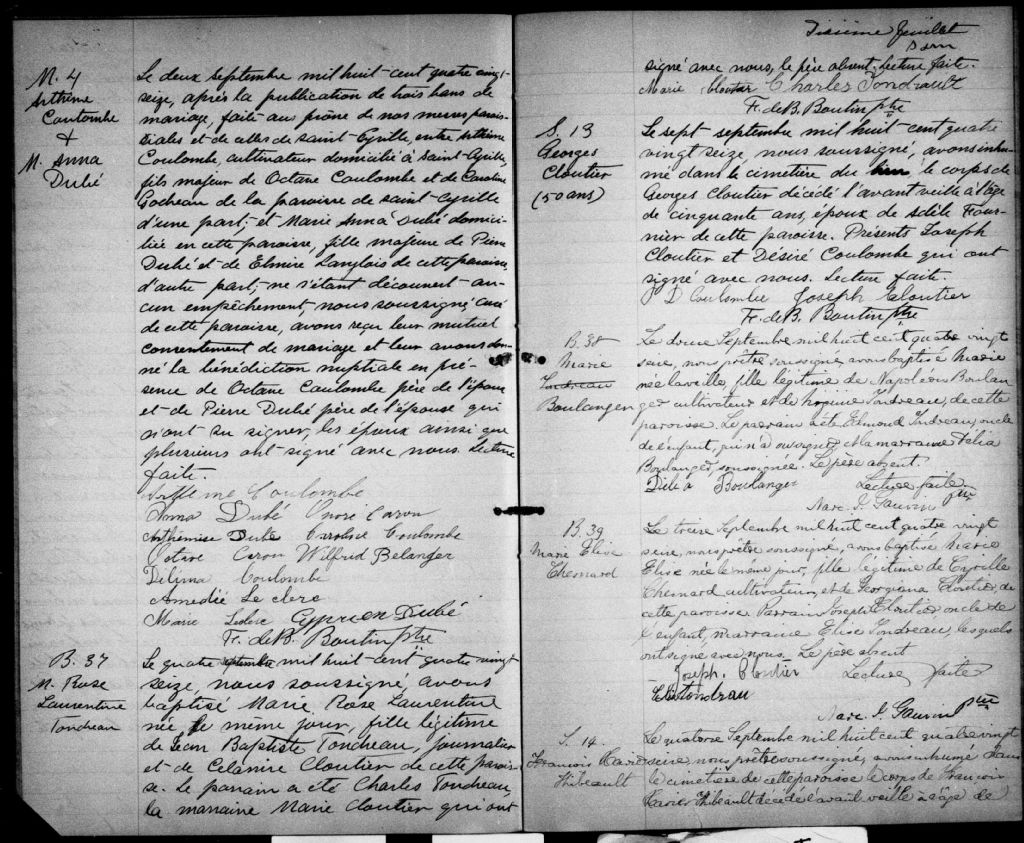 M. 4
Arthème
Coulombe
+
M. Anna
Dubé
Le deux septembre mil huit-cent quatre vingt-
seize, après la publication de trois bans de
mariage, faite au prône de nos messes parois-
siales et de celles de saint-Cyrille, entre Arthème
Coulombe, cultivateur domicilié à saint-Cyrille,
fils majeur de Octave Coulombe et de Caroline
de la paroisse de saint-Cyrille
d'une part; et Marie Anna Dubé domici-
liée en cette paroisse, fille majeure de Pierre
Dubé et de Elmire Langlois de cette paroisse,
d'autre part; ne s'étant découvert au-
cun empêchement, nous soussigné curé
de cette paroisse, avons reçu leur mutuel
consentement de mariage et leur avons don-
né la bénédiction nuptiale en pré-
sence de Octave Coulombe père de l'époux
et de Pierre Dubé père de l'épouse qui
n'ont su signer, les époux ainsi que
plusieurs ont signé avec nous. Lecture
faite.
Artheme Coulombe
Anna Dubé Onoré Caron
Arthémise Dubé Caroline Coulombe
Octave Caron Wilfrid Belanger
Délima Coulombe
Amédié Le clerc
Marie Leclerc Cyprien Dubé
Fr. de B. Boutin ptre
B. 37
M. Rose
Laurentine
Tondreau
Le quatre septembre mil huit-cent quatre vingt
seize, nous soussigné avons
baptisé Marie Rose Laurentine
née, le même jour, fille légitime
de Jean Baptiste Tondreau, journalier
et de Célanire Cloutier de cette parois-
se. Le parrain a été Charles Tondreau,
la marraine Marie Cloutier qui ont
feuillet
signé avec nous, le père absent. Lecture faite.
Marie Cloutier Charles Tondreault
Fr. de B. Boutin ptre
S. 13
Georges
Cloutier
(50 ans)
Le sept septembre mil huit-cent quatre
vingt seize, nous soussigné, avons inhu-
mé dans le cimetière du lieu le corps de
Georges Cloutier décédé l'avant veille à l'âge
de cinquante ans, époux de Adèle Four-
nier de cette paroisse. Présents Joseph
Cloutier et Désiré Coulombe qui ont
signé avec nous. Lecture faite.
D Coulombe Joseph Cloutier
Fr. de B. Boutin Ptre
B. 38
Marie
Tondreau
Boulanger
Le douze Septembre mil huit cent quatre vingt
seize, nous prêtre soussigné, avons baptisé Marie
née la veille, fille légitime de Napoléon Boulan
ger cultivateur et de Tondreau, de cette
paroisse. Le parrain a été Edmond Tondreau, oncle
de l'enfant, qui n'a su signer. La marraine Délia
Boulanger, soussignée. Le père absent.
Délia Boulanger Lecture faite
Narc. J. Gauvin ptre
B. 39
Marie Elise
Chenard
Le treize Septembre mil huit cent quatre vingt
seize, nous prêtre soussigné, avons baptisé Marie
Elise née le même jour, fille légitime de Cyrille
Chenard cultivateur, et de Georgiana Cloutier, de
cette paroisse. Parrain Joseph Cloutier oncle de
l'enfant, marraine Elise Tondreau, lesquels
ont signé avec nous. Le père absent
Joseph. Cloutier Lecture faite
Narc. J. Gauvin Ptre
S. 14.
François Xavier
Thibeault
Le quatorze Septembre mil huit cent quatre vingt
seize, nous prêtre soussigné, avons inhumé dans
le cimetière de cette paroisse le corps de François
Xavier Thibeault décédé l'avant veille à l'âge de